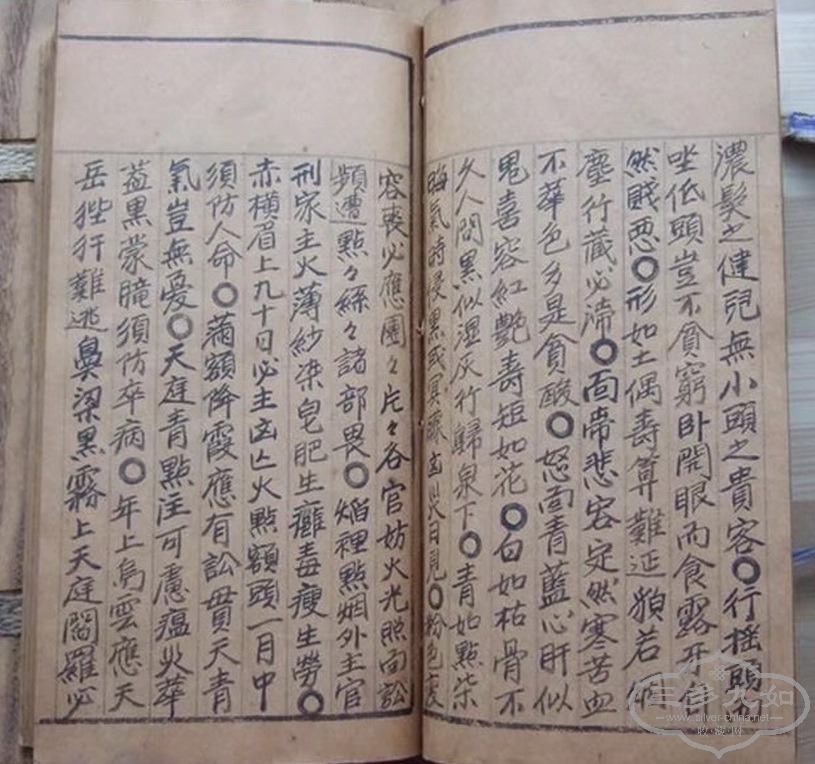 濃髮之健兒無小頭之貴客〇行搖頭
坐低頭豈不貧窮卧開眼而食露牙
然賤惡〇形如土偶壽算難延貌若
塵行藏必滯〇面帶悲容定然寒苦血
不華色多是貧酸〇怒面青藍心肝似
鬼喜容紅艷壽短如花〇白如枯骨不
久人間黑似湿灰行歸泉下〇青如點柒
晦氣時侵黑或冥濛凶災日見〇粉色衰
容喪必應團々片々各官妨火光照面訟
頻遭點々絲々諸部畏〇焰裡點烟外主官
刑家主火薄紗柒皂肥生癰毒瘦生勞〇
赤橫眉上九十日必主凶亾火點額頭一月中
須防人命〇滿額降霞應有訟貫天青
氣豈無憂〇天庭青點注可慮瘟災華
蓋黑蒙瞳須防卒病〇年上烏雲應天
岳狴犴難逃鼻梁黑霧上天庭閻羅必
www.silver-china.net